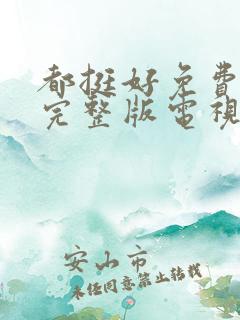 都挺好免费
完整版電視
安山市
未经同意禁止转载